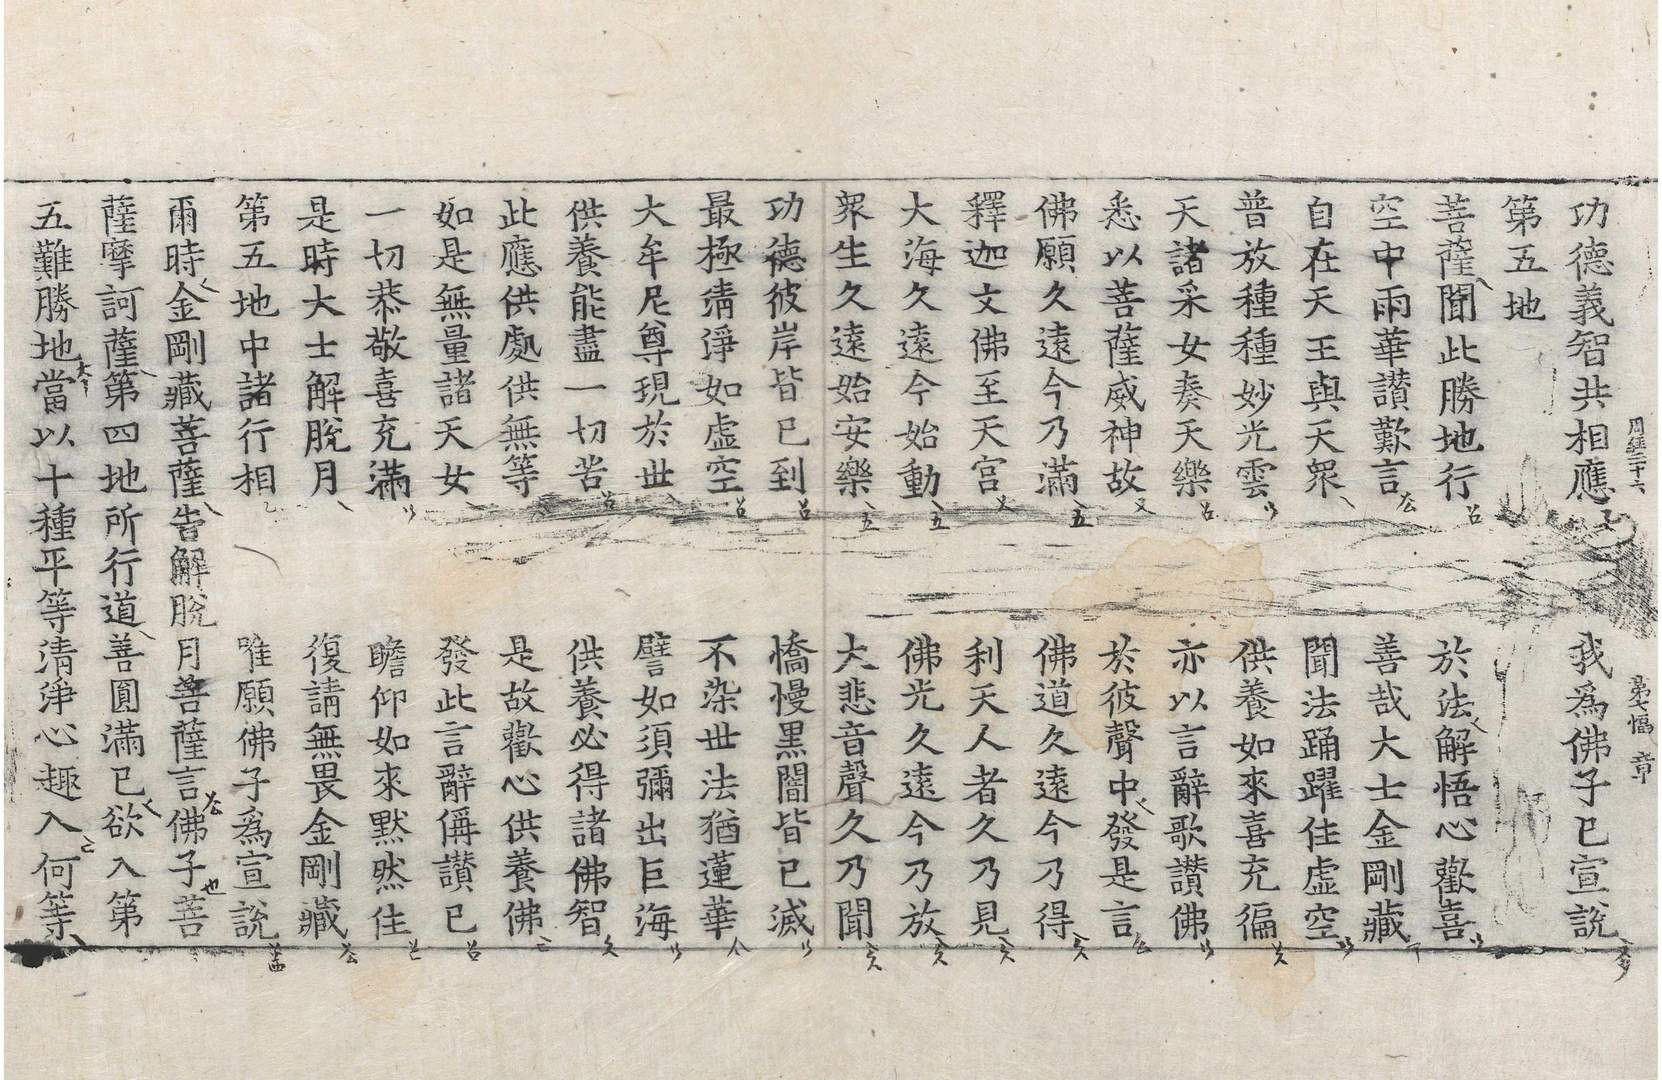 功德義智共相應 我為佛子已宣說
周經三十六 第七幅 章
第五地
菩薩聞此勝地行 於法解悟心歡喜
空中雨華讃歎言 善哉大士金剛藏
自在天王與天眾 聞法踊躍住虛空
普放種種妙光雲 供養如來喜充徧
天諸采女奏天樂 亦以言辭歌讃佛
悉以菩薩威神故 於彼聲中發是言
佛願久遠今乃滿 佛道久遠今乃得
釋迦文佛至天宮 利天人者久乃見
大海久遠今始動 佛光久遠今乃放
眾生久遠始安樂 大悲音聲久乃聞
功德彼岸皆已到 憍慢黑闇皆已滅
最極清淨如虛空 不染世法猶蓮華
大牟尼尊現於世 譬如須彌出巨海
供養能盡一切苦 供養必得諸佛智
此應供處供無等 是故歡心供養佛
如是無量諸天女 發此言辭偁讃已
一切恭敬喜充滿 瞻仰如來默然住
是時大士解脫月 復請無畏金剛藏
第五地中諸行相 唯願佛子為宣說
爾時金剛藏菩薩告解脫月菩薩言佛子菩
薩摩訶薩第四地所行道善圓滿已欲入第
五難勝地當以十種平等清淨心趣入何等